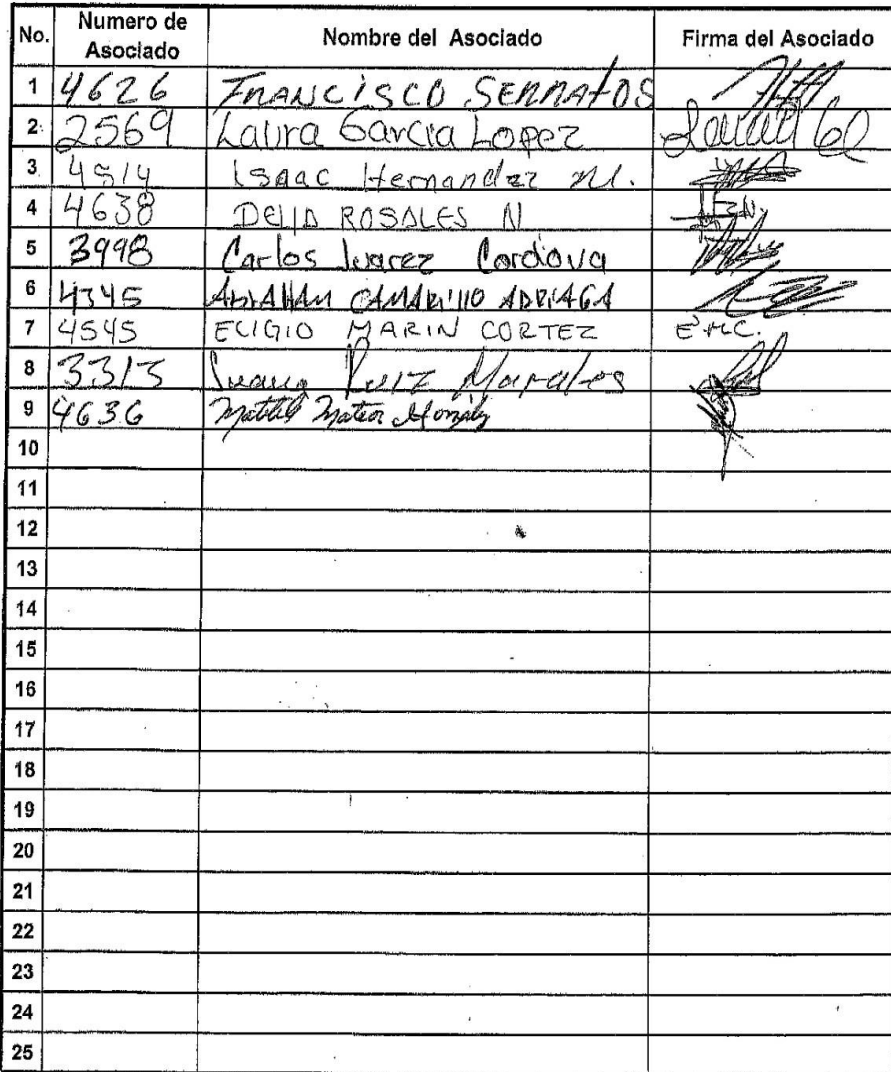 No. Numero de Asociado Nombre del Asociado Firma del Asociado
1 4626 FRANCISCO SERRATOS
2 2569 Laura Garcia Lopez
3 4514 Isaac Hernandez M.
4 4638 DELIA ROSALES N
5 3998 Carlos Juarez Cordova
6 4345 ABRAHAM CAMARILLO
7 4545 ELIGIO MARIN CORTEZ E.M.C.
8 3313 Juana Ruiz Morales
9 4636
10
11
12
13
14
15
16
17
18
19
20
21
22
23
24
25